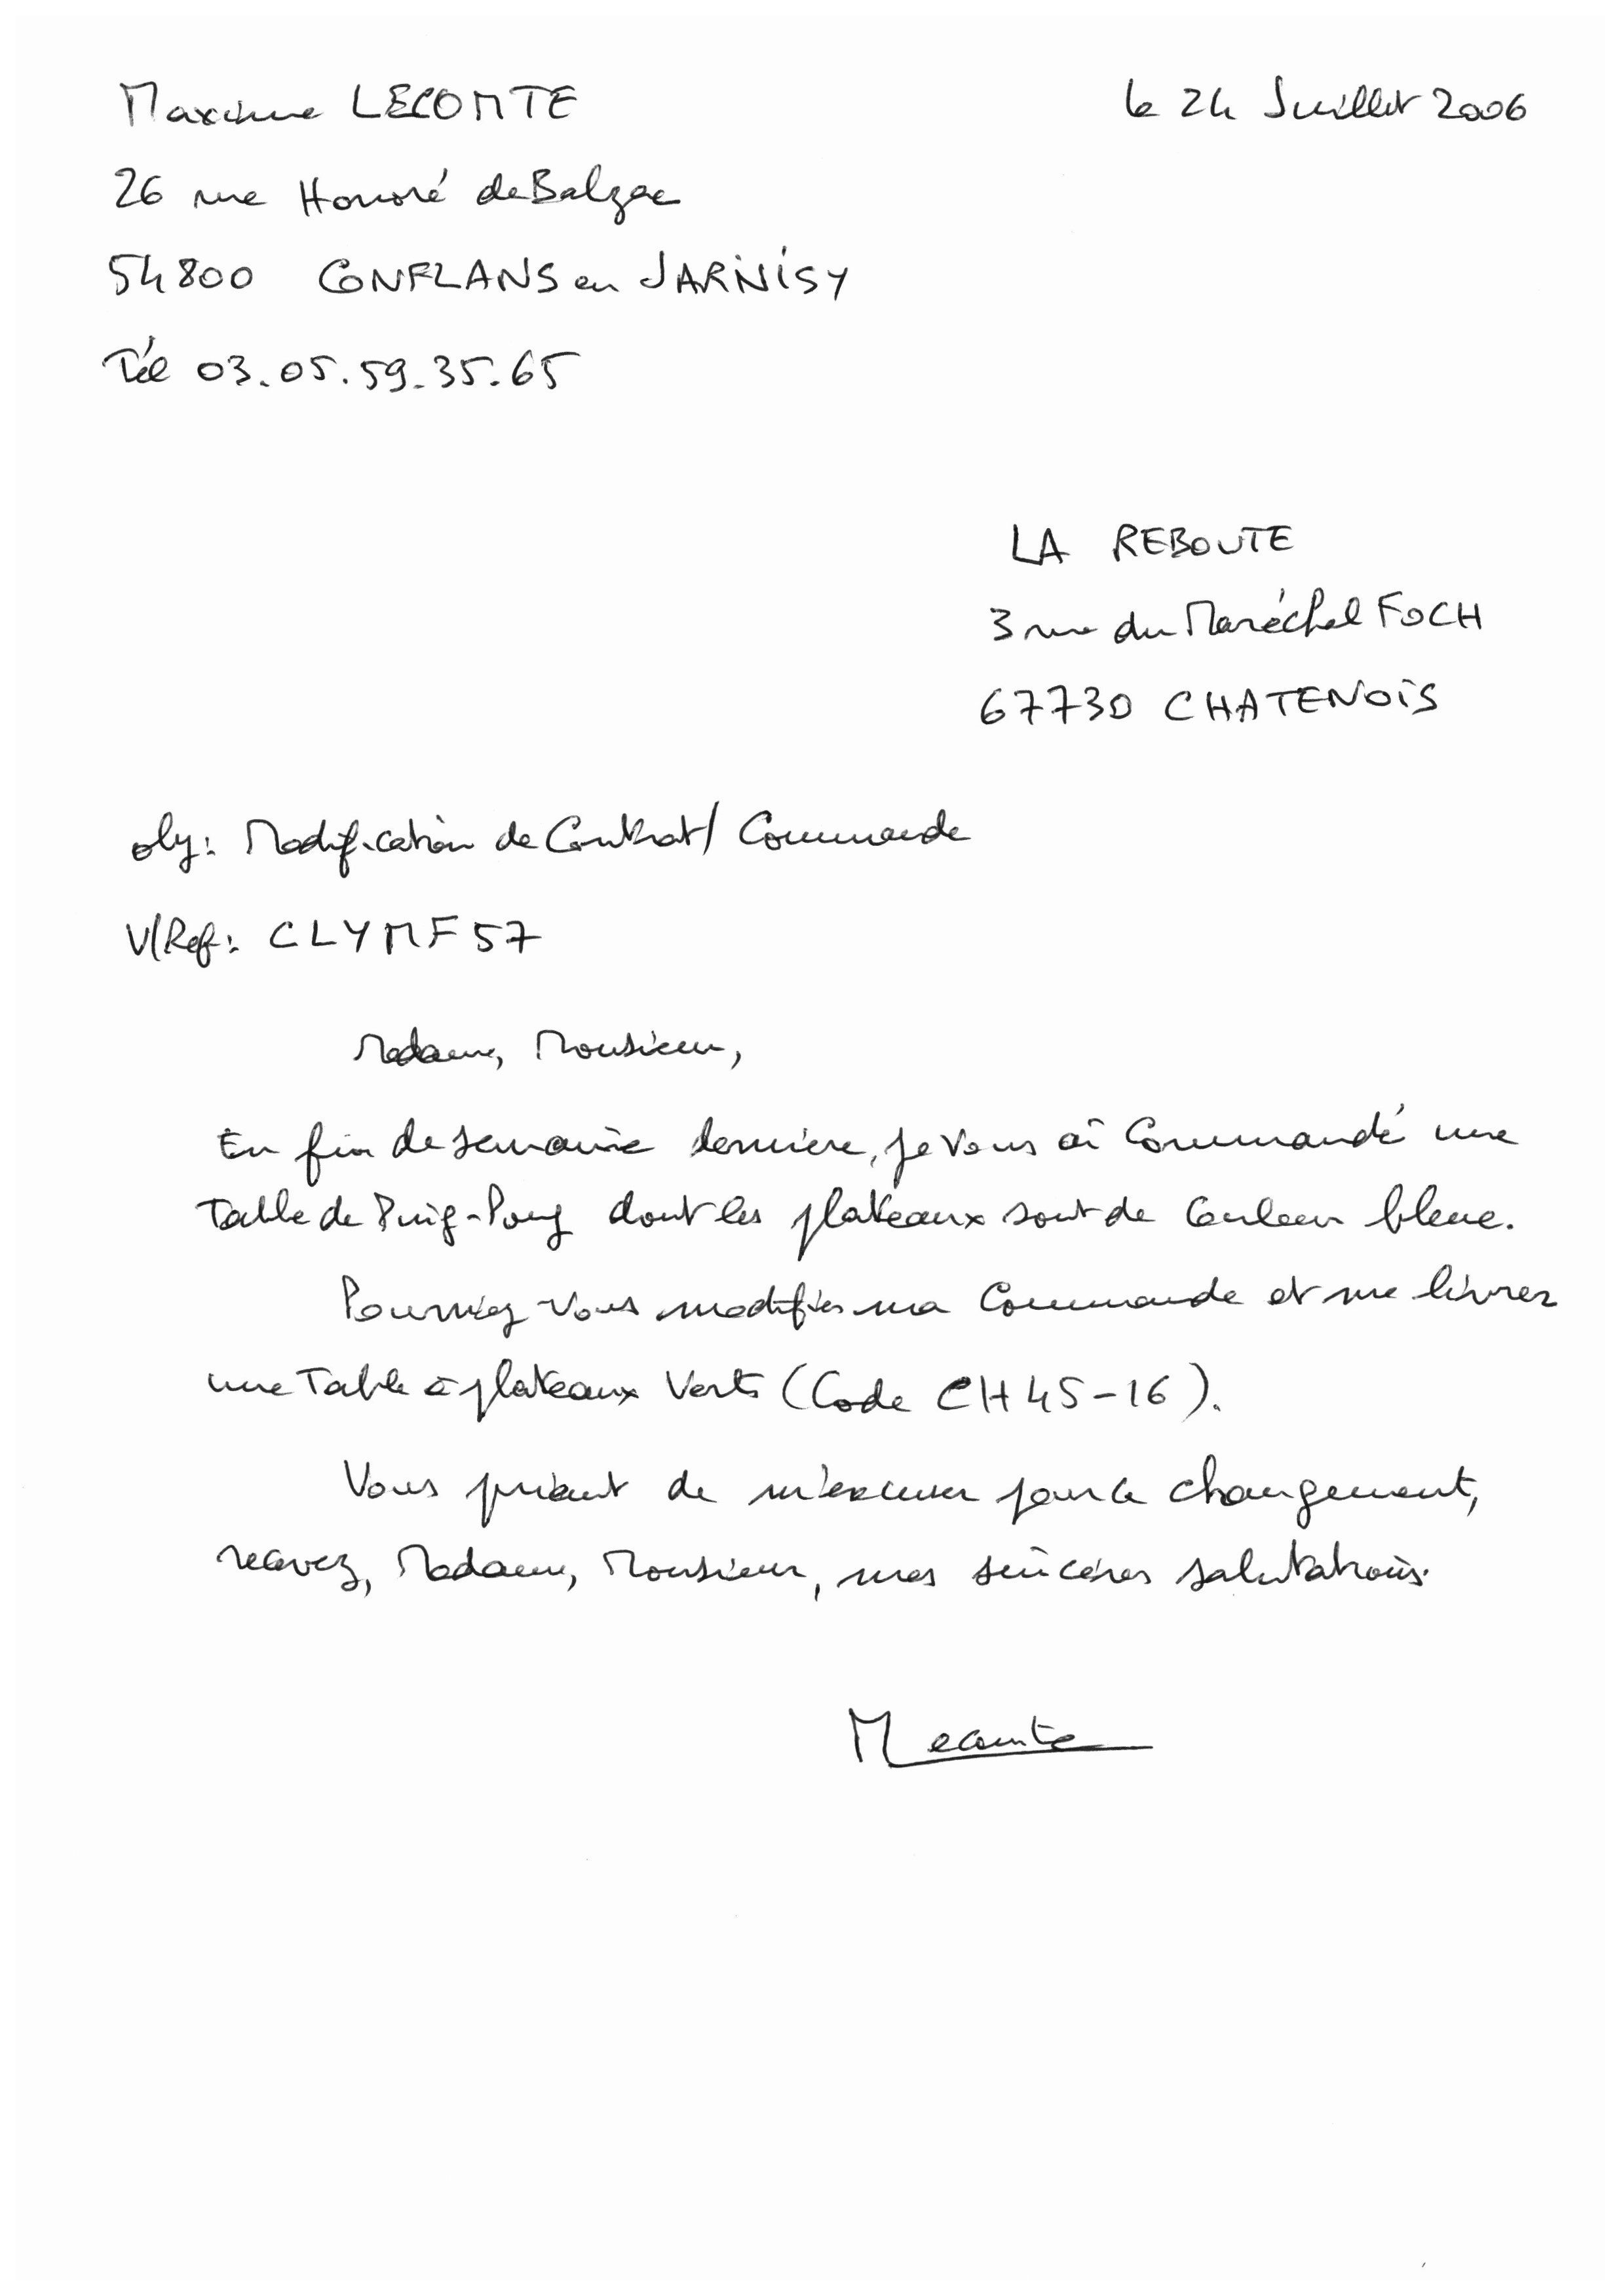 Maxime LECOMTE
le 24 Juillet 2006
26 rue Honoré de Balzac
54800 CONFLANS en JARNISY
Tél 03.05.59.35.65
LA REBOUTE
3 rue du Maréchal FOCH
67730 CHATENOIS
obj: Modification de Contrat/Commande
V/Ref: CLYMF57
Madame, Monsieur,
En fin de semaine dernière, je vous ai commandé une
Table de Ping-Pong dont les plateaux sont de couleur bleue.
Pourriez-vous modifier ma commande et me livrer
une Table à plateaux verts (Code CH45-16).
Vous priant de m'excuser pour ce changement,
recevez, Madame, Monsieur, mes sincères salutations.
MLecomte